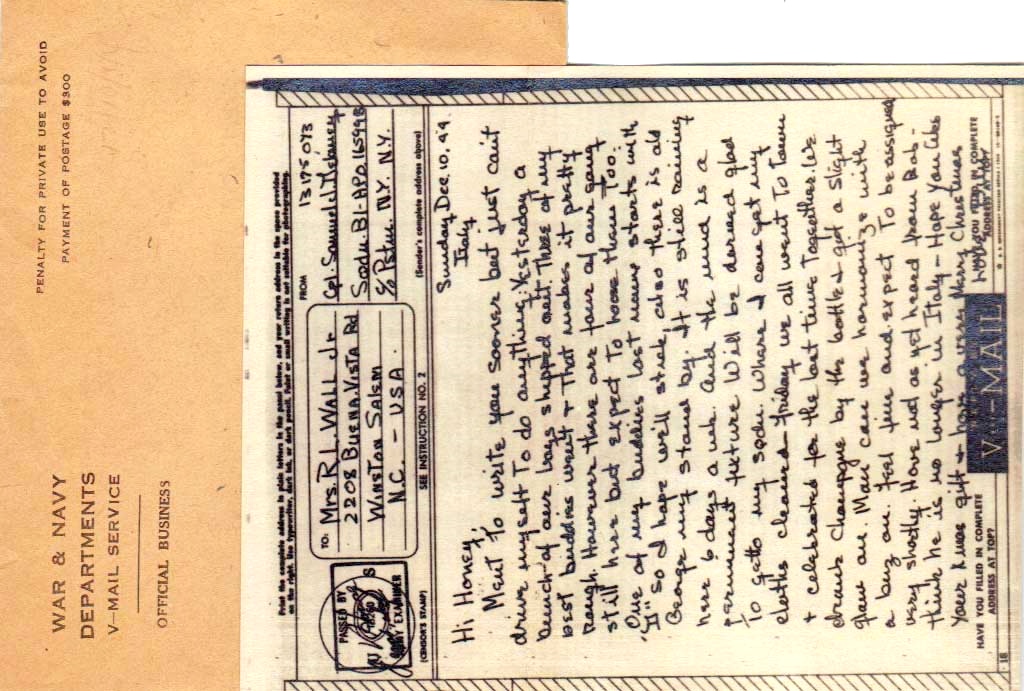 PENALTY FOR PRIVATE USE TO AVOID
PAYMENT OF POSTAGE $300
WAR & NAVY
DEPARTMENTS
V-MAIL SERVICE
OFFICIAL BUSINESS
Print the complete address in plain letters in the panel below, and your return address in the space provided
on the right. Use typewriter, dark ink, or dark pencil. Faint or small writing is not suitable for photographing.
PASSED BY
U S
ARMY EXAMINER
(CENSOR'S STAMP)
TO:
Mrs. R.L. WALL Jr
2208 BUENA VISTA Rd
WINSTON SALEM
N.C. - USA.
SEE INSTRUCTION NO. 2
FROM
13175073
Cpl. Samuel J.
Sqdn. Bl. APO. 16599B
c/o Pstm. N.Y. N.Y.
(Sender's complete address above)
Sunday Dec. 10. 44.
Italy
Hi Honey;
Meant To write you sooner but just can't
drive myself To do anything. Yesterday a
bunch of our boys shipped out. Three of my
best buddies went & That makes it pretty
rough. However there are four of our gang
still here but expect To loose them Too.
One of my buddies last name starts with
"I" so I hope we'll stick, also there is old
George my stand by. It is still raining
here 6 days a wk. and the mud is a
permanent fixture. Will be darned glad
To get to my sqdn. where I can get my
cloths cleaned. Friday we all went To Town
& celebrated for the last time Together. We
drank Champagne by the bottle & got a slight
glow on. Man can we harmonize with
a buzz on. Feel fine and expect To be assigned
very shortly. Have not as yet heard from Bob-
think he is no longer in Italy - Hope you like
your Xmas gift & have a very Merry Christmas
Love
HAVE YOU FILLED IN COMPLETE
ADDRESS AT TOP?
V-MAIL
HAVE YOU FILLED IN COMPLETE
ADDRESS AT TOP?